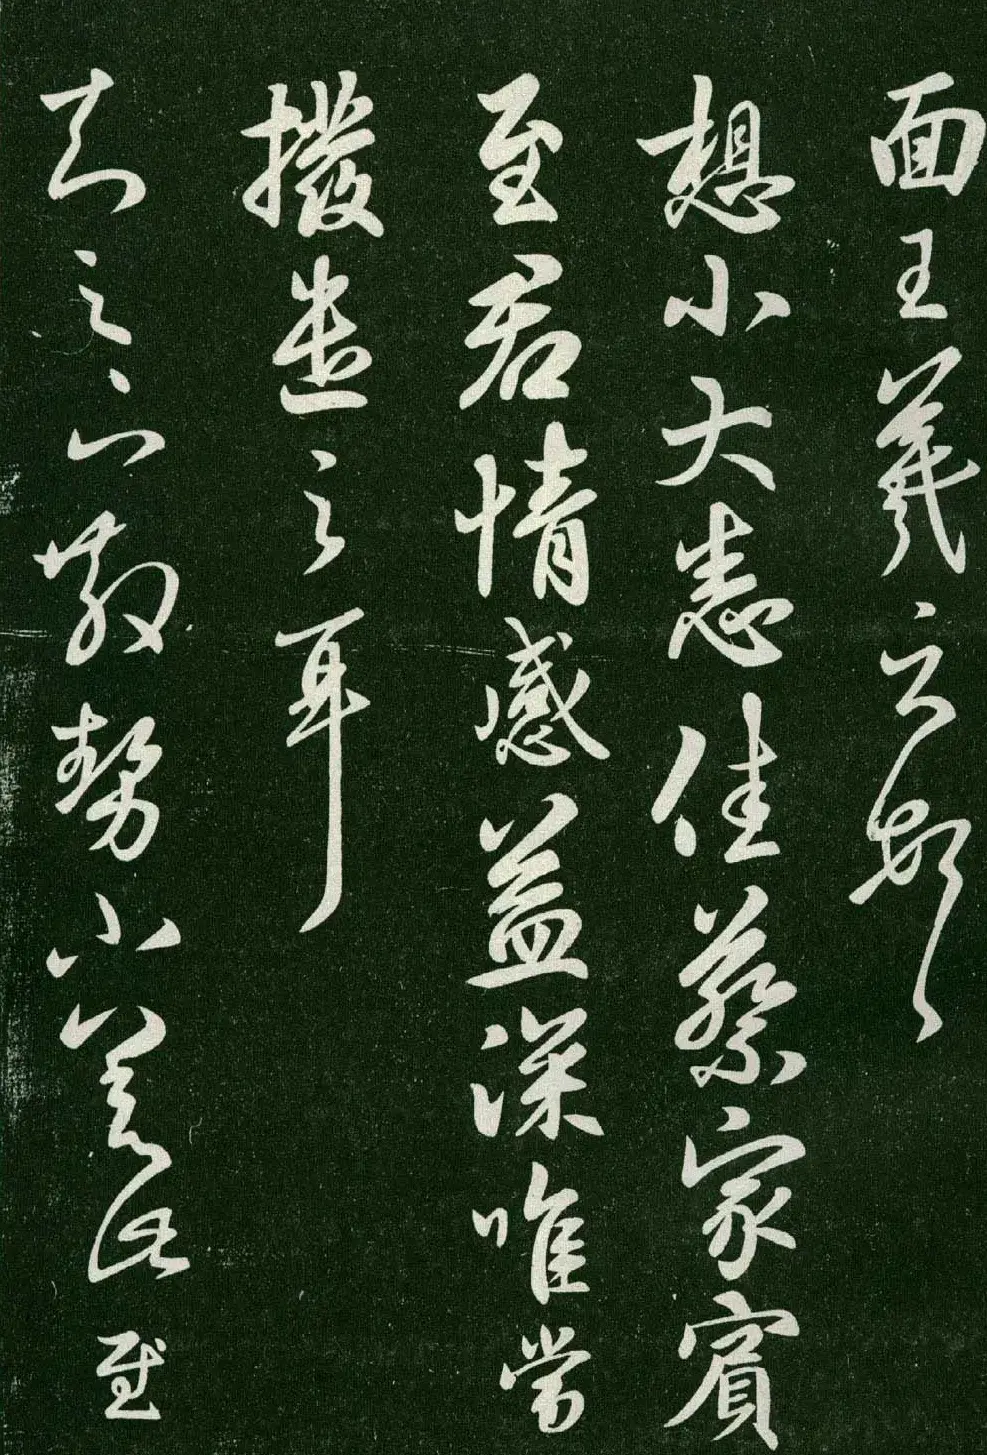 面王羲之頓首
想小大悉佳蔡家賓
至君情感益深唯當
撥遣之耳
知足下散勢小差此慰